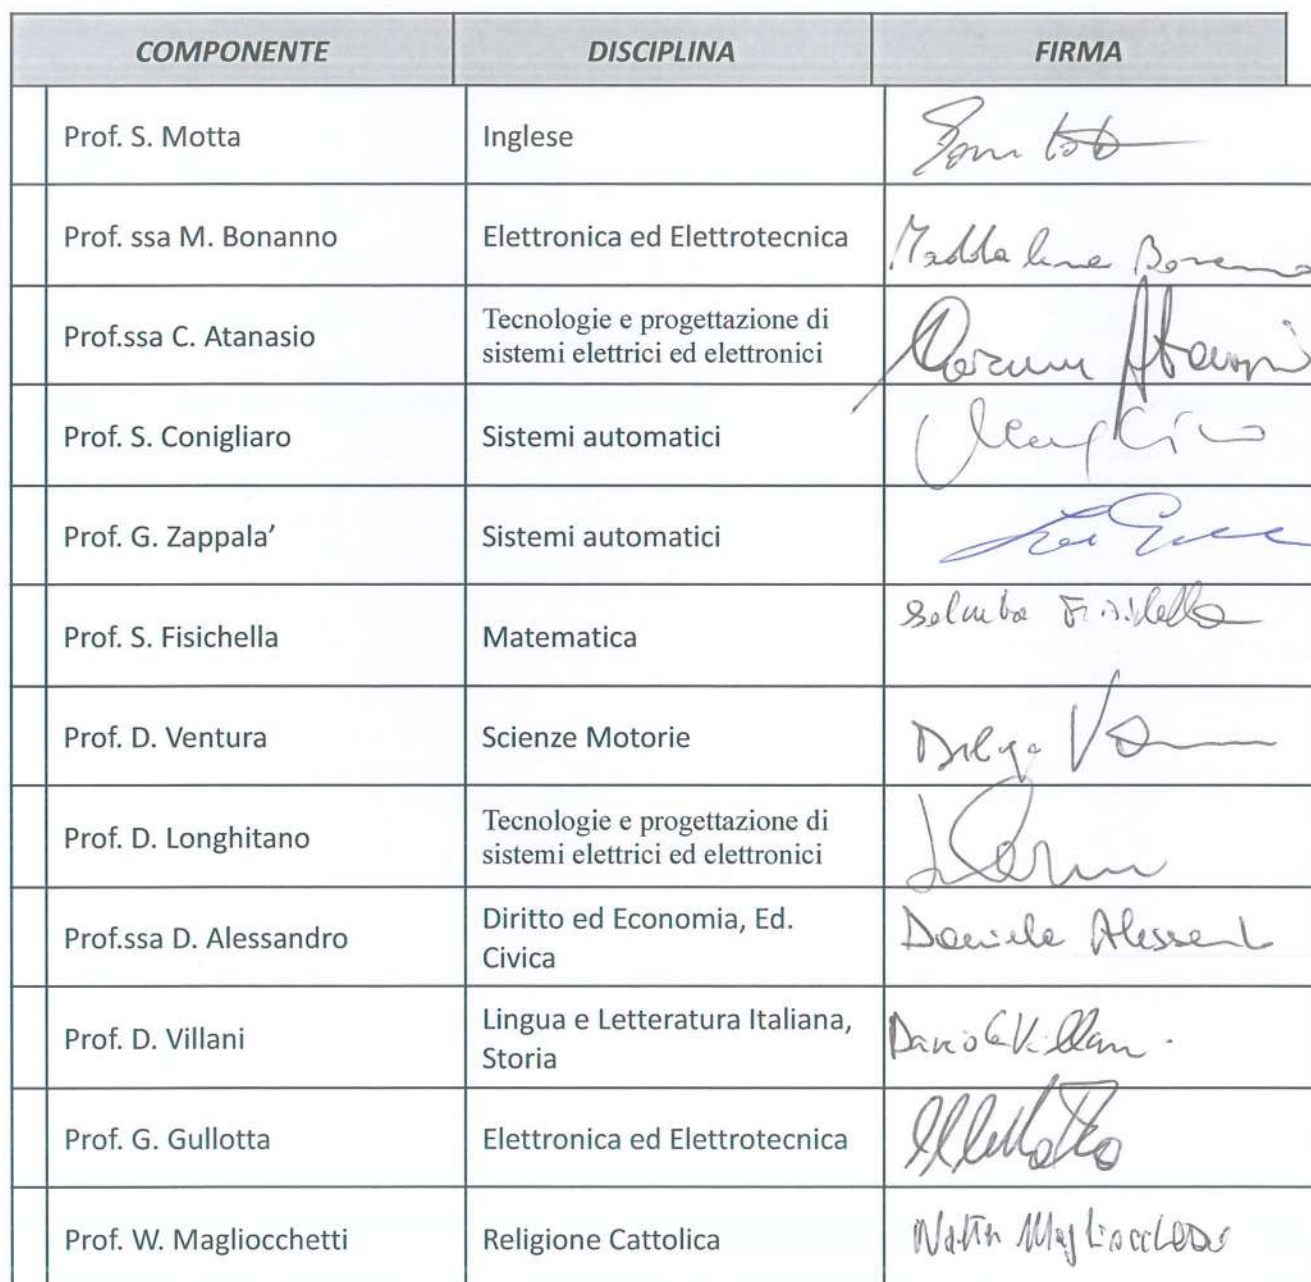 COMPONENTE DISCIPLINA FIRMA
Prof. S. Motta Inglese
Prof. ssa M. Bonanno Elettronica ed Elettrotecnica Maddalena Bonanno
Prof.ssa C. Atanasio Tecnologie e progettazione di
sistemi elettrici ed elettronici
Prof. S. Conigliaro Sistemi automatici
Prof. G. Zappala’ Sistemi automatici
Prof. S. Fisichella Matematica Fisichella
Prof. D. Ventura Scienze Motorie
Prof. D. Longhitano Tecnologie e progettazione di
sistemi elettrici ed elettronici
Prof.ssa D. Alessandro Diritto ed Economia, Ed.
Civica Daniela Alessand
Prof. D. Villani Lingua e Letteratura Italiana,
Storia Villani
Prof. G. Gullotta Elettronica ed Elettrotecnica
Prof. W. Magliocchetti Religione Cattolica Walter Magliocchetti